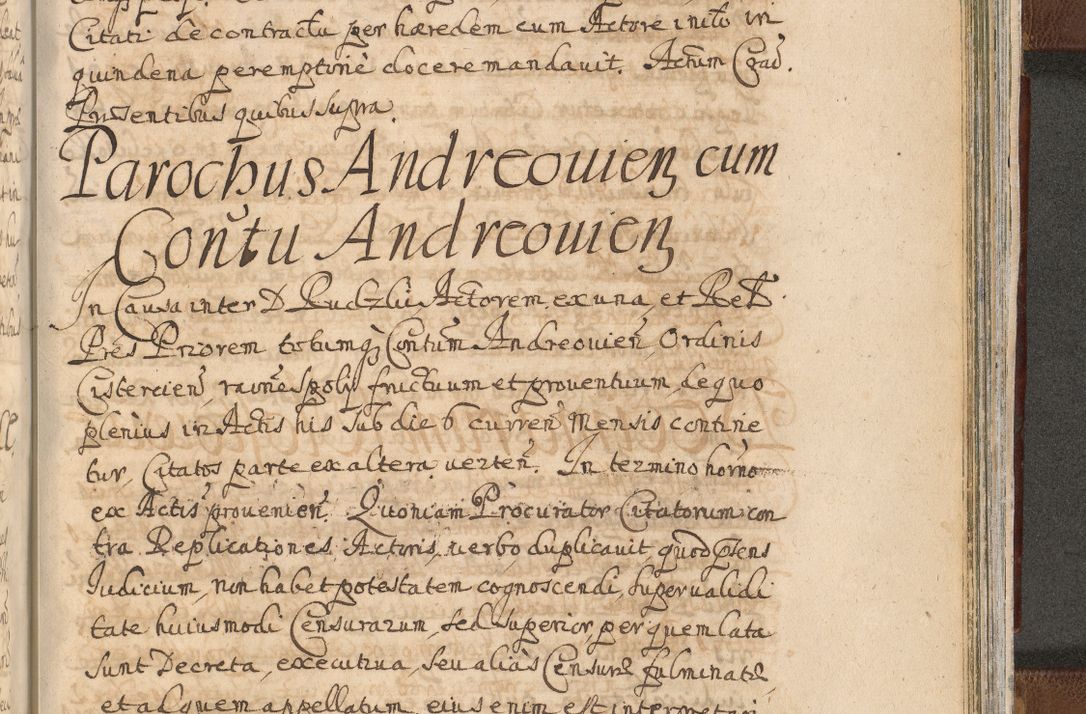 Citati de contractu per hæredem cum Actore inito in
quindena peremptorie docere mandavit. Actum Crac̃.
Præsentibus quibus supra.
Parochus Andreouień cum
Contũ Andreouień
In Causa inter D. Rudzki Actorem ex una, et Rēd.
Pres Priorem totumq Contum Andreouień Ordinis
Cisterciēn, raōne spolij fructuum et prouentuum, de quo
plenius in Actis his sub die 6 curreñ Mensis contine
tur, Citatos parte ex altera uerteñ. In termino horno
ex Actis prouenieñ. Quoniam Procurator Citatorum con
tra Replicationes Actoris, uerbo duplicauit, quod p̃ens
Iudicium, non habet potestatem cognoscendi, super ualidi
tate huiusmodi Censurarum, sed superior, per quem lata
sunt Decreta, executiua, seu alias Censuræ fulminatæ
et ad quem appellatum, eius enim est interpretari